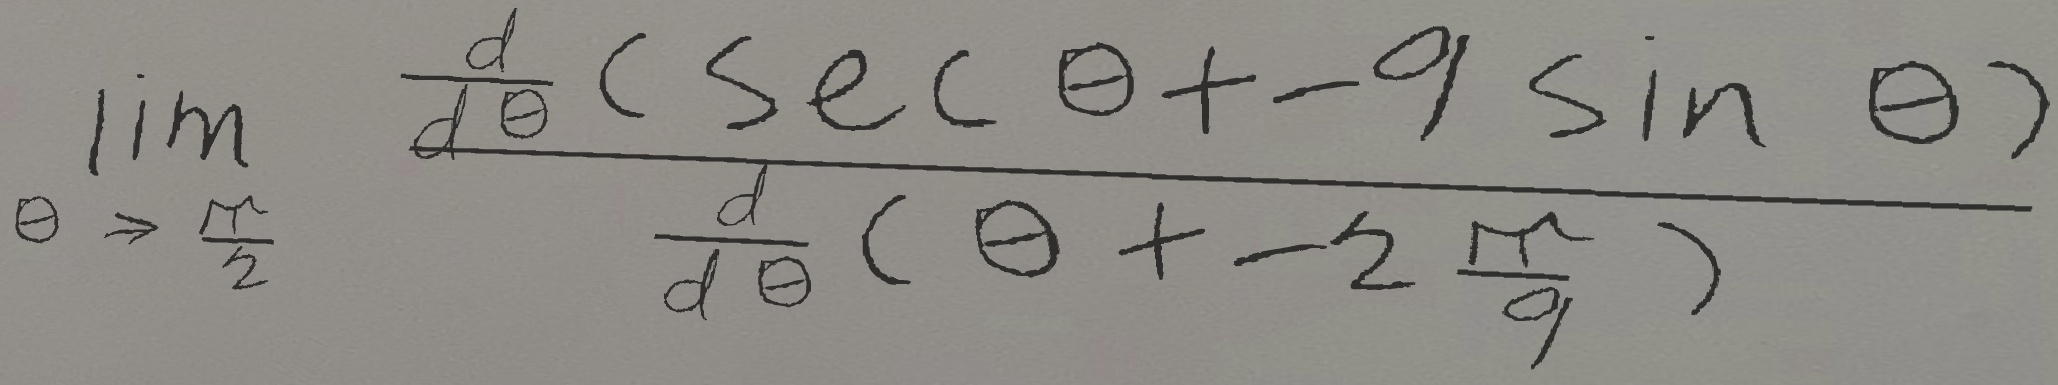 \lim_{\theta \to \frac{\pi}{2}} \frac{\frac{d}{d\theta}(\sec\theta + -9\sin\theta)}{\frac{d}{d\theta}(\theta + -2\frac{\pi}{9})}